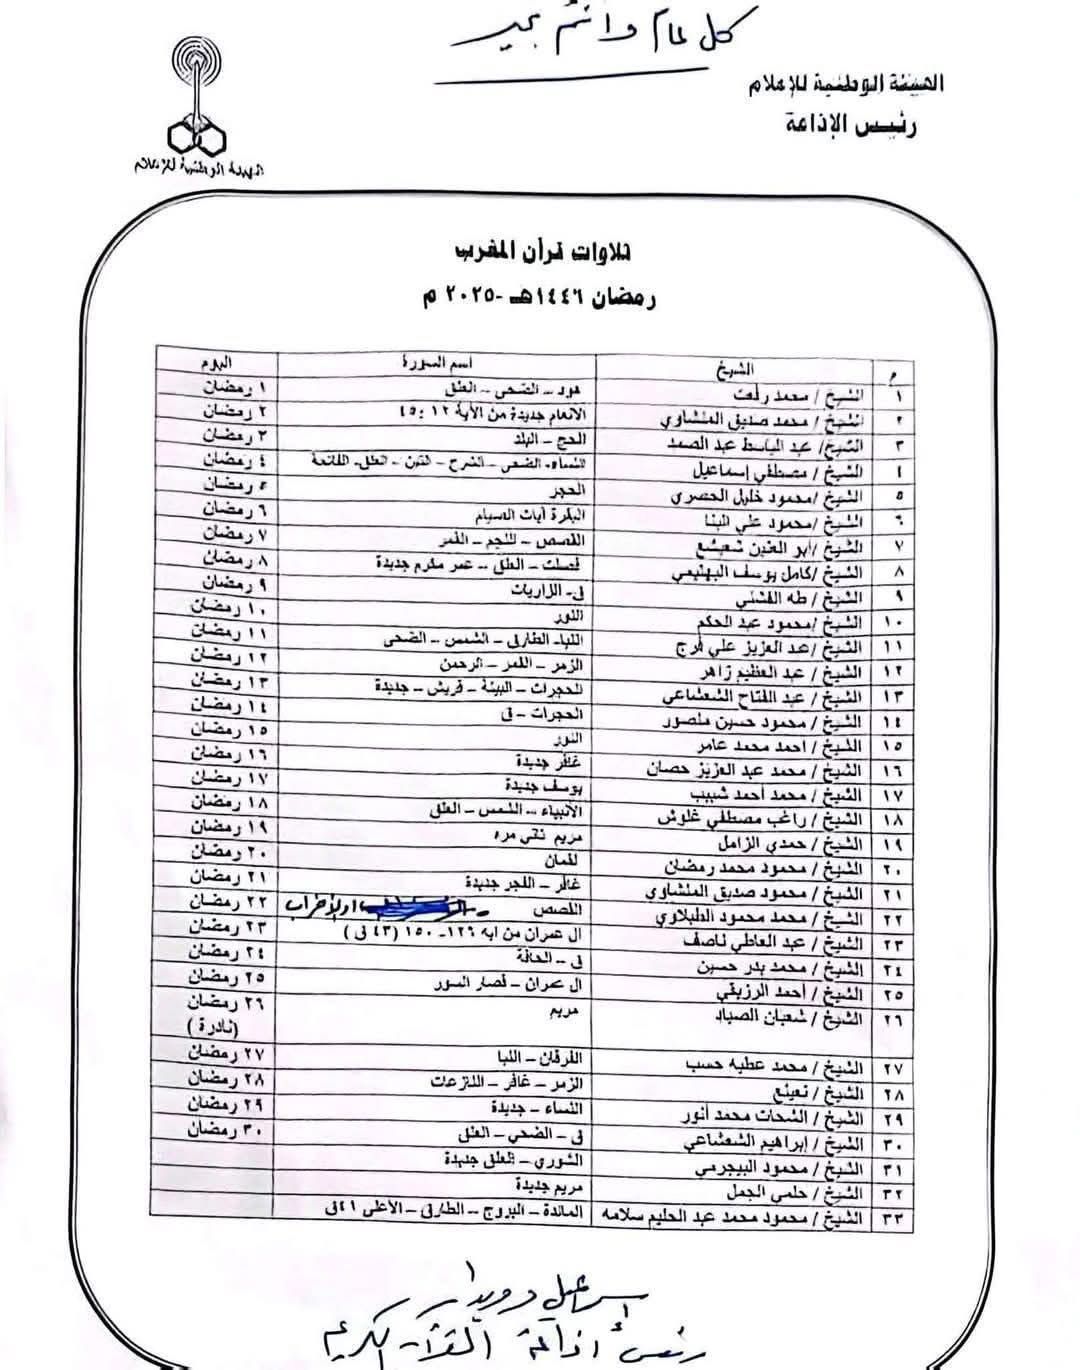 كل عام وأنتم بخير
الهيئة الوطنية للإعلام
رئيس الإذاعة
الهيئة الوطنية للإعلام
تلاوات قرآن المغرب
رمضان ١٤٤٦هـ -٢٠٢٥ م
م الشيخ اسم السورة اليوم
١ الشيخ / محمد رفعت هود – الضحى – العلق ١ رمضان
٢ الشيخ / محمد صديق المنشاوي الانعام جديدة من الآية ١٢ :٤٥ ٢ رمضان
٣ الشيخ/ عبد الباسط عبد الصمد الحج – البلد ٣ رمضان
٤ الشيخ / مصطفي إسماعيل النساء- الضحى – الشرح – التين – العلق- الفاتحة ٤ رمضان
٥ الشيخ /محمود خليل الحصري الحجر ٥ رمضان
٦ الشيخ /محمود علي البنا البقرة آيات الصيام ٦ رمضان
٧ الشيخ /أبو العنين شعيشع القصص – النجم – القمر ٧ رمضان
٨ الشيخ /كامل يوسف البهتيمي فصلت – العلق – جديدة ٨ رمضان
٩ الشيخ / طه الفشني ق- الزاريات ٩ رمضان
١٠ الشيخ /محمود عبد الحكم النور ١٠ رمضان
١١ الشيخ /عبد العزيز علي فرج النبا- الطارق – الشمس – الضحى ١١ رمضان
١٢ الشيخ / عبد العظيم زاهر الزمر – القمر – الرحمن ١٢ رمضان
١٣ الشيخ / عبد الفتاح الشعشاعي الحجرات – البينة – قريش – جديدة ١٣ رمضان
١٤ الشيخ / محمود حسين منصور الحجرات – ق ١٤ رمضان
١٥ الشيخ / احمد محمد عامر النور ١٥ رمضان
١٦ الشيخ / محمد عبد العزيز حصان غافر جديدة ١٦ رمضان
١٧ الشيخ / محمد أحمد شبيب يوسف جديدة ١٧ رمضان
١٨ الشيخ / راغب مصطفي غلوش الأنبياء – الشمس – العلق ١٨ رمضان
١٩ الشيخ / حمدي الزامل مريم تاني مره ١٩ رمضان
٢٠ الشيخ / محمود محمد رمضان لقمان ٢٠ رمضان
٢١ الشيخ / محمود صديق المنشاوي غافر – الفجر جديدة ٢١ رمضان
٢٢ الشيخ / محمد محمود الطبلاوي القصص والأحزاب ٢٢ رمضان
٢٣ الشيخ / عبد العاطي ناصف ال عمران من ايه ١٢٦- ١٥٠ (٤٣ ق ) ٢٣ رمضان
٢٤ الشيخ / محمد بدر حسين ق – الحاقة ٢٤ رمضان
٢٥ الشيخ / أحمد الرزيقي ال عمران – قصار السور ٢٥ رمضان
٢٦ الشيخ / شعبان الصياد مريم ٢٦ رمضان
(نادرة )
٢٧ الشيخ / محمد عطيه حسب الفرقان – النبا ٢٧ رمضان
٢٨ الشيخ / نعينع الزمر – غافر – النازعات ٢٨ رمضان
٢٩ الشيخ / الشحات محمد أنور النساء – جديدة ٢٩ رمضان
٣٠ الشيخ / إبراهيم الشعشاعي ق – الضحي – العلق ٣٠ رمضان
٣١ الشيخ / محمود البيجرمي الشوري – العلق جديدة
٣٢ الشيخ / حلمي الجمل مريم جديدة
٣٣ الشيخ / محمود محمد عبد الحليم سلامه المائدة – البروج – الطارق – الأعلى ٤١ق
إسماعيل دويدار
رئيس إذاعة القرآن الكريم